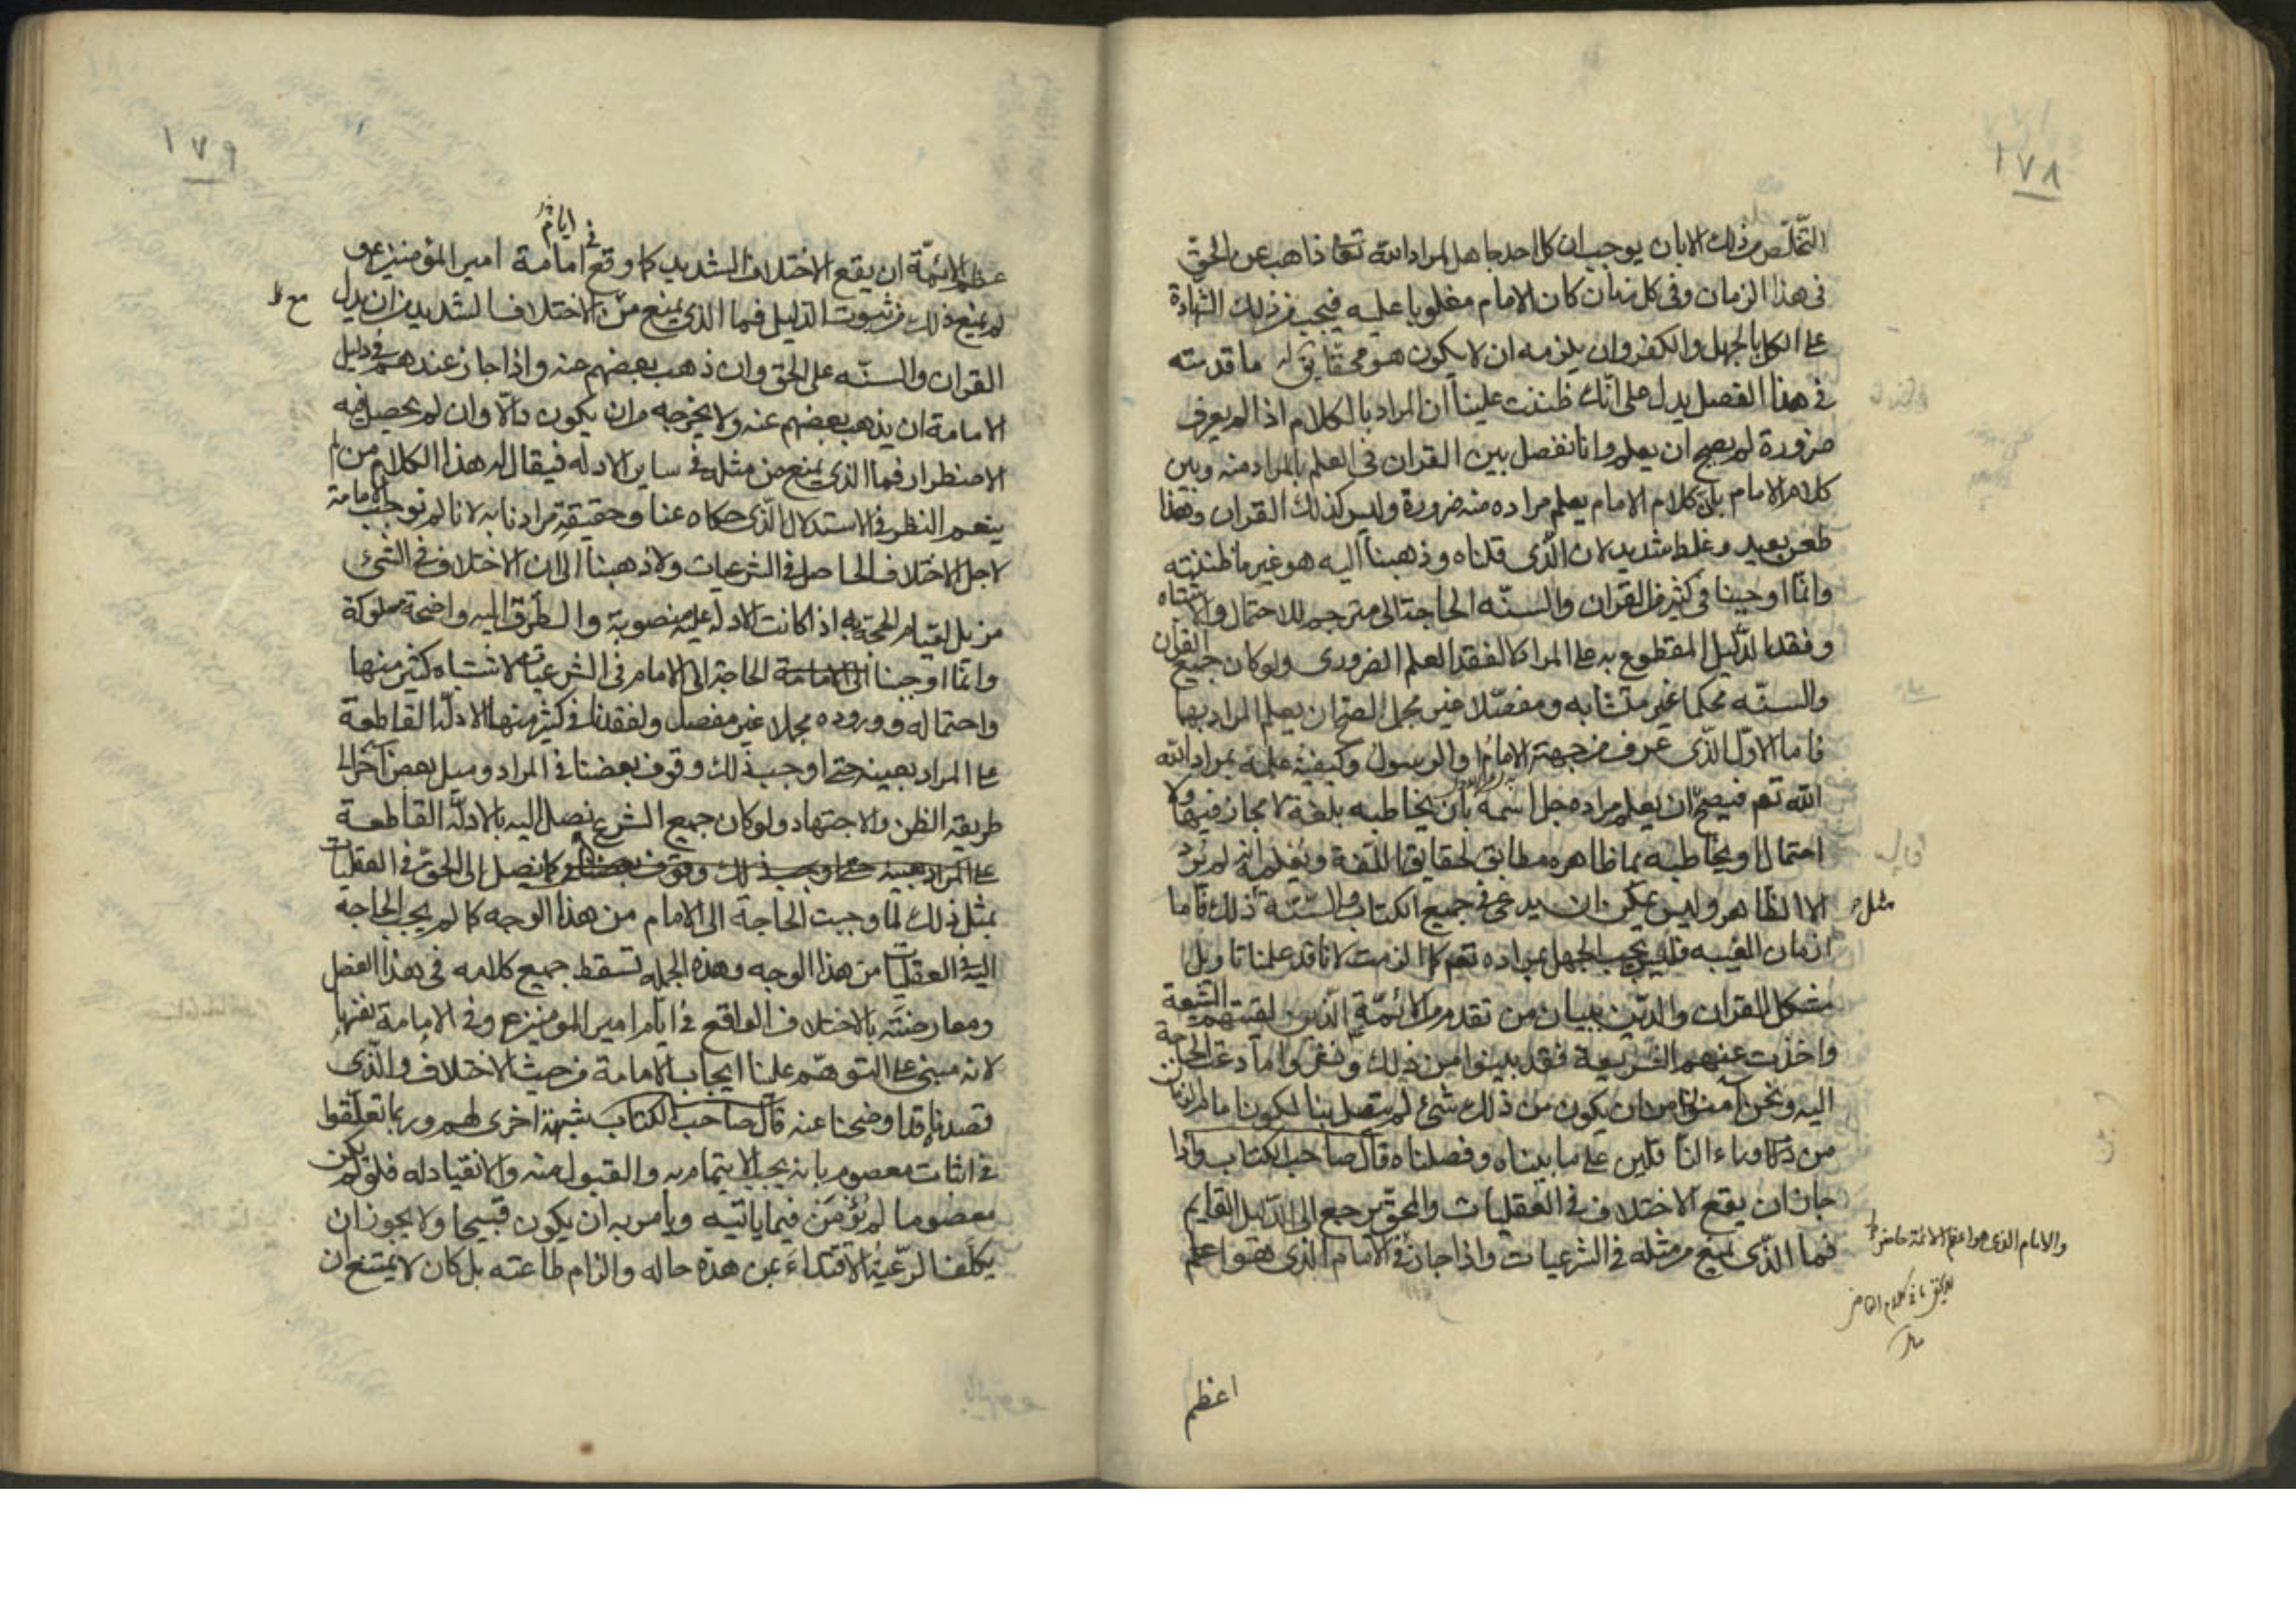 ١٧٨
التخلّص من ذلك الا بان يوجب ان كل احد جاهل لمراد الله تعالى ذاهب عن الحقّ
فى هذا الزمان وفى كل زمان كان الامام مغلوبا عليه فيجب من ذلك الشهادة
على الكل بالجهل والكفر وان يلزمه ان لا يكون هو محقا يق له ما قدمته
فى هذا الفصل يدل على انّك ظننت علينا ان المراد بالكلام اذا لم يعرف
ضرورة لم يصح ان يعلم وانا نفصل بين القران فى العلم بالمراد منه وبين
كلام الامام بان كلام الامام يعلم مراده منه ضرورة وليس كذلك القران وهذا
ظن بعيد وغلط شديد لان الّذى قلناه وذهبنا اليه هو غير ما ظننته
وانّما اوجبنا فى كثير من القران والسنّه الحاجة الى مترجم للاحتمال والاشتباه
وفقد الدّليل المقطوع به على المراد لا لفقد العلم الضرورى ولو كان جميع القران
والسنّه محكما غير متشابه ومفصّلا غير مجمل لصح ان يعلم المراد بهما
فاما الاوّل الّذى عرف من جهته الامام والرسول وكيفية علمه بمراد الله
الله تعم فيصحّ ان يعلم مراده جل اسمه بان يخاطبه بلغة لا مجاز فيها ولا
احتمال او يخاطبه بما ظاهره مطابق لحقايق اللغة ويعلمه انه لم يرد
الا الظاهر وليس يمكن ان يدعى فى جميع الكتاب والسنّة ذلك فاما
مثل
ازمان الغيبه فليس يجب الجهل بمراده تعم كما الزمت لانا قد علمنا تاويل
مشكل القران والدّين ببيان من تقدم من الائمّة الّذين لقيتهم الشيعة
واخذت عنهم الشريعة فقد بثوا من ذلك ونشروا ما دعت الحاجة
اليه ونحن آمنون من ان يكون من ذلك شئ لم يتصل بنا لكون امام الزمان
من وراء الناقلين على ما بيناه وفصلناه قال صاحب الكتاب واذا
جاز ان يقع الاختلاف فى العقليات والمحقّ يرجع الى الدّليل القايم
فما الّذى يمنع من مثله فى الشرعيات واذا جاز فى الامام الذى هو اعظم
والامام الذى هو اعظم الائمة حاضر
اعظم
١٧٩
فى ايام
عظم الائمّة ان يقع الاختلاف الشديد كما وقع امامة امير المؤمنين ع و
لم يمنع ذلك من ثبوت الدليل فما الذى يمنع من الاختلاف الشديد من ان يدل
القران والسنّه على الحق وان ذهب بعضهم عنه واذا جاز عندهم فى دليل
الامامة ان يذهب بعضهم عنه ولا يخرجه من ان يكون دالا وان لم يحصل فيه
الاضطرار فما الذى يمنع من مثله فى ساير الادله فيقال له هذا الكلام من لم
ينعم النظر فى الاستدلال الّذى حكاه عنا وحقيقة مرادنا به لانا لم نوجب الامامة
لاجل الاختلاف الحاصل فى الشرعيات ولا ذهبنا الى ان الاختلاف فى الشئ
مزيل لقيام الحجة به اذا كانت الادلة عليه منصوبة والطّرق اليه واضحة مسلوكة
وانّما اوجبنا الى الامامة الحاجة الى الامام فى الشرعيات لاشتباه كثير منها
واحتماله ووروده مجملا غير مفصل ولفقدنا فى كثير منها الادلّة القاطعة
على المراد بعينه حتى اوجب ذلك وقوف بعضنا فى المراد وميل بعض آخر الى
طريقة الظن والاجتهاد ولو كان جميع الشرع نصل اليه بالادلّة القاطعة
على المراد بعينه حتى اوجب ذلك وقوف بعضنا كما نصل الى الحق فى العقليات
بمثل ذلك لما وجبت الحاجة الى الامام من هذا الوجه كما لم يجب الحاجة
اليه فى العقليّات من هذا الوجه وهذه الجملة تسقط جميع كلامه فى هذا الفصل
ومعارضته بالاختلاف الواقع فى ايّام امير المومنين ع وفى الامامة نفسها
لانه مبنى على التوهّم علينا ايجاب الامامة من حيث الاختلاف والّذى
قصدناه قد اوضحنا عنه قال صاحب الكتاب شبهة اخرى لهم وربما تعلّقوا
فى اثبات معصوم بانه يجب الايتمام به والقبول منه والانقياد له فلو لم يكن
معصوما لم نؤمن فيما ياتيه ويامر به ان يكون قبيحا ولا يجوز ان
يكلّفنا الرّعية الاقتداء بمن هذه حاله والزام طاعته بل كان لا يمتنع ان